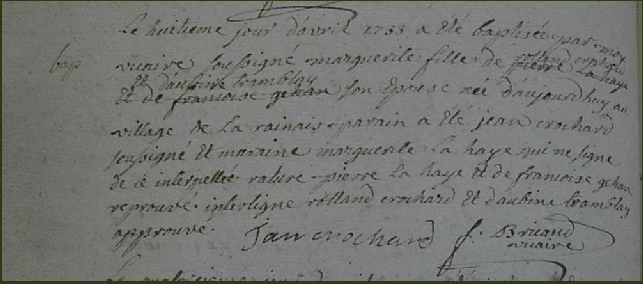 Le huitieme jour d'avril 1733 a été baptisée par moy
bap vicaire soussigné marguerite fille de pierre La haye
rolland crochard
et d'aubine tramblay
et de francoise gehan son epouse née d'aujourdhuy au
village de La rainais parain a été jean crochard
soussigné et maraine marguerite La haye qui ne signe
de ce interpellee rature pierre La haye et de francoise gehan
reprouve interligne rolland crochard et d'aubine tramblay
approuve
Jan crochard f. Briand
vicaire